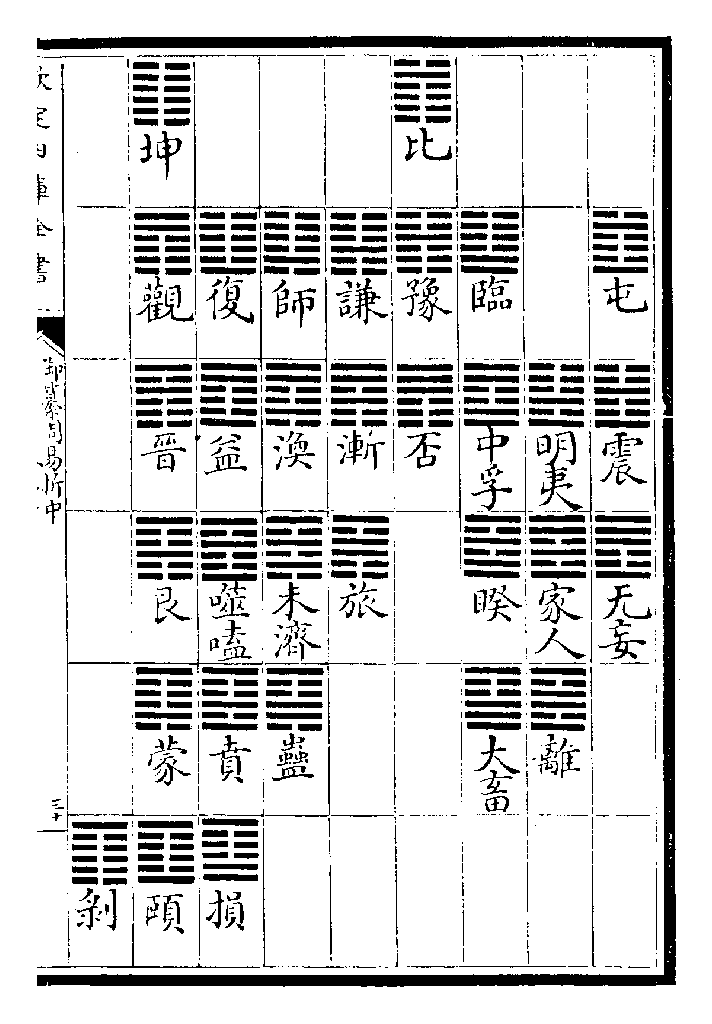 屯 震 无妄
明夷 家人 離
臨 中孚 睽 大畜
比 豫 否
謙 漸 旅
師 渙 未濟 蠱
復 益 噬嗑 賁 損
坤 觀 晉 艮 蒙 頤
剝
欽定四庫全書
御纂周易折中
三十